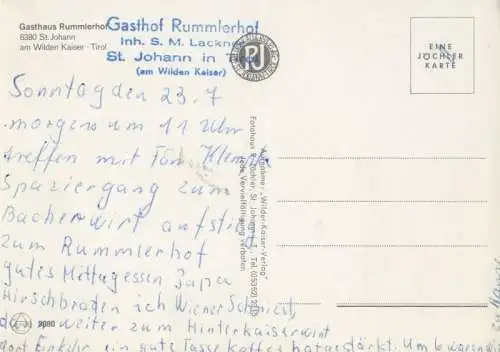 Gasthaus Rummlerhof
6380 St. Johann
am Wilden Kaiser · Tirol
Gasthof Rummlerhof
Inh. S. M. Lackner
St. Johann in Tirol
(am Wilden Kaiser)
PJ
EINE
JÖCHLER
KARTE
Sonntag den 23.7
morgens um 11 Uhr
treffen mit Fam Klem
Spaziergang zum
Bacherwirt aufstieg
zum Rummlerhof
gutes Mittagessen Papa
Hirschbraden ich Wiener Schnitzel,
da weiter zum Hinterkaiserwirt
dort Einkehr ein gute Tasse Kaffee hat gestärkt. Um
9080
Aufnahme: „Wilder-Kaiser-Verlag"
Fotohaus P. Jöchler, St. Johann, Tel. (05352)
Jede Vervielfältigung verboten